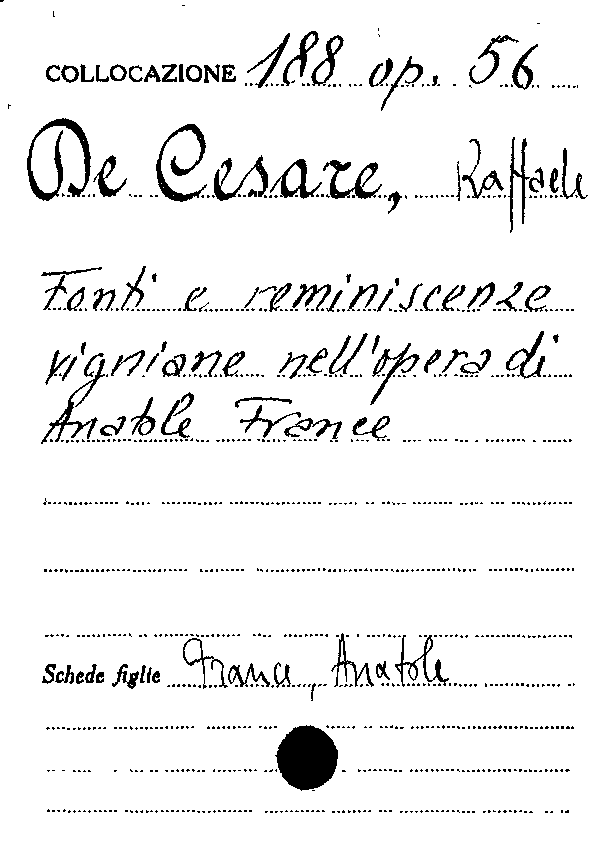 COLLOCAZIONE 188 op. 56
De Cesare, Raffaele
Fonti e reminiscenze
vigniane nell'opera di
Anatole France
Schede figlie France, Anatole